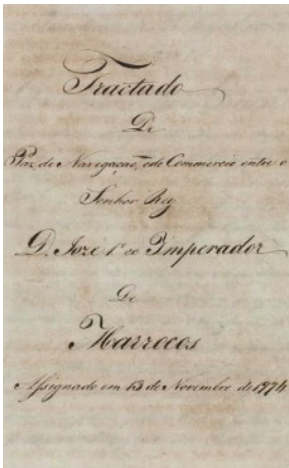 Tractado
De
Paz de Navegaçaõ, e de Commercio entre o
Senhor Rey
D. Jozé 1º e o Imperador
De
Marrocos
Assignado em 13 de Novembro de 1774